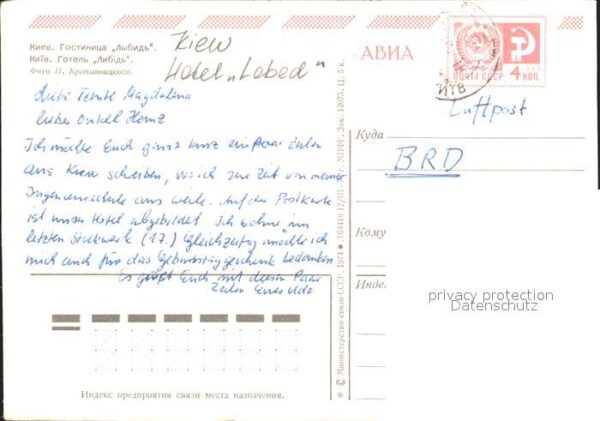 Киев. Гостиница „Лыбидь".
Київ. Готель „Либідь".
Фото П. Кропивницкого.
Kiew
Hotel „Lebed"
АВИА
ПОЧТА СССР 4 КОП
Luftpost
Куда
BRD
Кому
Индекс
privacy protection
Datenschutz
Liebe Tante Magdalena
lieber Onkel Heinz
Ich möchte Euch ganz kurz ein paar Zeilen
aus Kiew schreiben, wo ich zur Zeit von meiner
Ingenieurschule aus weile. Auf der Postkarte
ist unser Hotel abgebildet. Ich wohne im
letzten Stockwerk (17.) Gleichzeitig möchte ich
mich auch für das Geburtstagsgeschenk bedanken.
Es grüßt Euch mit diesen paar
Zeilen Euer Udo
© Министерство связи СССР, 1974
Индекс предприятия связи места назначения.